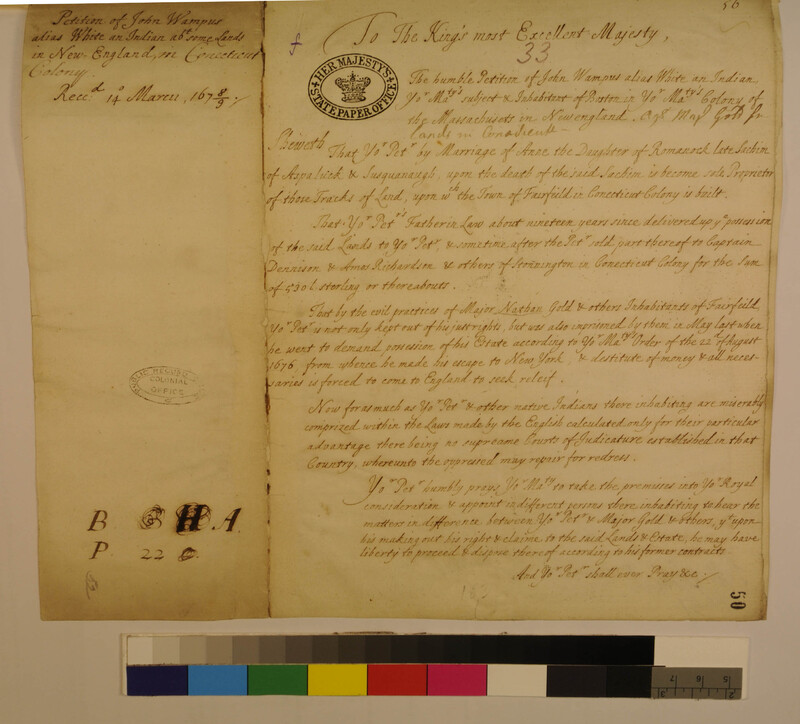 Petition of John Wampus
alias White an Indian abt. some Lands
in New England, in Conecticut
Colony.
Recd. 14o March, 1678/9
B
H A.
P. 22
COLONIAL
OFFICE
56
To The King's most Excellent Majesty,
33
HER MAJESTY'S
STATE PAPER OFFICE
The humble Petition of John Wampus alias White an Indian
Yor Matys subject & Inhabitant of Boston in Yor Matys Colony of
the Massachusets in Newengland. Majr Gold for
lands in Conecticutt
Sheweth
That Yor Petr by Marriage of Anne the Daughter of Romanock late Sachim
of Aspatuck & Susquanaugh, upon the death of the said Sachim is become sole Proprietor
of those Tracks of Land, upon wch the Town of Fairfeild in Conecticut Colony is built.
That Yor Petrs Father in Law about nineteen years since delivered up ye possession
of the said Lands to Yor Petr, & sometime after the Petr sold part thereof to Captain
Dennison & Amos Richardson & others of Stonnington in Conecticut Colony for the Sum
of 530 l sterling or thereabouts.
That by the evil practices of Major Nathan Gold & others Inhabitants of Fairfeild
Yor Petr is not only kept out of his just rights, but was also imprisoned by them in May last when
he went to demand possession of his Estate according to Yor Matys Order of the 22d of August
1676, from whence he made his escape to New York, & destitute of money & all neces-
saries is forced to come to England to seek releif.
Now for as much as Yor Petr & other native Indians there inhabiting are miserably
comprized within the Laws made by the English calculated only for their particular
advantage there being no supreame Courts of Judicature established in that
Country, whereunto the oppressed may repair for redress.
Yor Petr humbly prays Yor Maty to take the premises into Yor Royal
consideration & appoint indifferent persons there inhabiting to hear the
matters in difference between Yor Petr & Major Gold & others, yt upon
his making out his right & claime to the said Lands & Estate, he may have
liberty to proceed & dispose thereof according to his former contracts
And Yor Petr shall ever Pray &c.
50